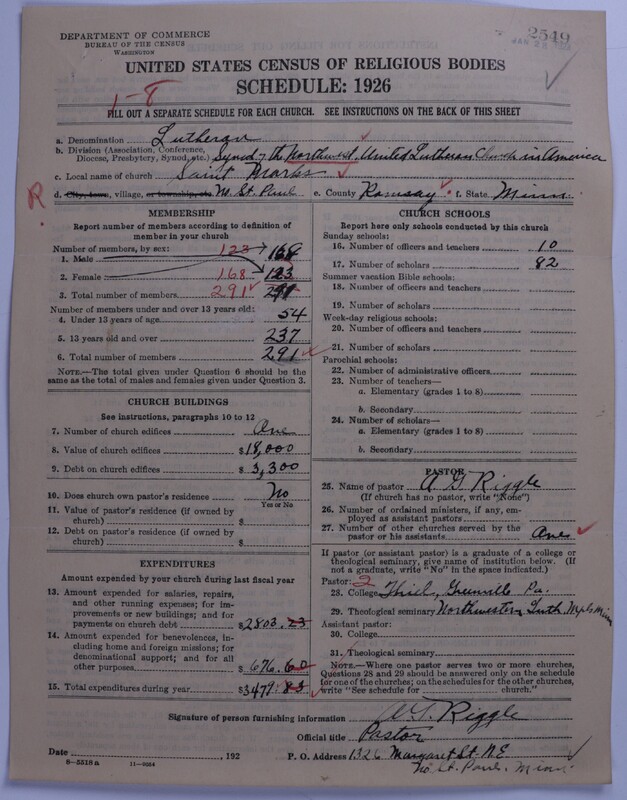 DEPARTMENT OF COMMERCE
BUREAU OF THE CENSUS
WASHINGTON
2549
JAN 28
UNITED STATES CENSUS OF RELIGIOUS BODIES
SCHEDULE: 1926
1-8
FILL OUT A SEPARATE SCHEDULE FOR EACH CHURCH. SEE INSTRUCTIONS ON THE BACK OF THIS SHEET
a. Denomination Lutheran
b. Division (Association, Conference, Diocese, Presbytery, Synod, etc.) Synod of the Northwest, United Lutheran Church in America
c. Local name of church Saint Marks
R d. City, town, village, or township, etc. No. St. Paul e. County Ramsay f. State Minn.
MEMBERSHIP
Report number of members according to definition of
member in your church
Number of members, by sex:
1. Male 123 168
2. Female 168 123
3. Total number of members 291 291
Number of members under and over 13 years old:
4. Under 13 years of age 54
5. 13 years old and over 237
6. Total number of members 291
NOTE.—The total given under Question 6 should be
same as the total of males and females given under Question 3.
CHURCH BUILDINGS
See instructions, paragraphs 10 to 12
7. Number of church edifices One
8. Value of church edifices $18,000
9. Debt on church edifices $3,300
10. Does church own pastor's residence No
Yes or No
11. Value of pastor's residence (if owned by
church) $
12. Debt on pastor's residence (if owned by
church) $
EXPENDITURES
Amount expended by your church during last fiscal year
13. Amount expended for salaries, repairs,
and other running expenses; for im-
provements or new buildings; and for
payments on church debt $2803.23
14. Amount expended for benevolences, in-
cluding home and foreign missions; for
denominational support; and for all
other purposes $676.60
15. Total expenditures during year $3479.83
CHURCH SCHOOLS
Report here only schools conducted by this church
Sunday schools:
16. Number of officers and teachers 10
17. Number of scholars 82
Summer vacation Bible schools:
18. Number of officers and teachers
19. Number of scholars
Week-day religious schools:
20. Number of officers and teachers
21. Number of scholars
Parochial schools:
22. Number of administrative officers
23. Number of teachers—
a. Elementary (grades 1 to 8)
b. Secondary
24. Number of scholars—
a. Elementary (grades 1 to 8)
b. Secondary
PASTOR
25. Name of pastor A G Riggle
(If church has no pastor, write "None")
26. Number of ordained ministers, if any, em-
ployed as assistant pastors
27. Number of other churches served by the
pastor or his assistants One
If pastor (or assistant pastor) is a graduate of a college or
theological seminary, give name of institution below. (If
not a graduate, write "No" in the space indicated.)
Pastor: 2
28. College Thiel, Greenville Pa.
29. Theological seminary Northwestern Luth. Mpls Minn
Assistant pastor:
30. College
31. Theological seminary
NOTE.—Where one pastor serves two or more churches,
Questions 28 and 29 should be answered only on the schedule
for one of the churches; on the schedules for the other churches,
write "See schedule for church."
Signature of person furnishing information A G. Riggle
Official title Pastor
Date , 192 P. O. Address 1326 Margaret St. N.E
No. St. Paul, Minn.
8-5518 a 11-9054